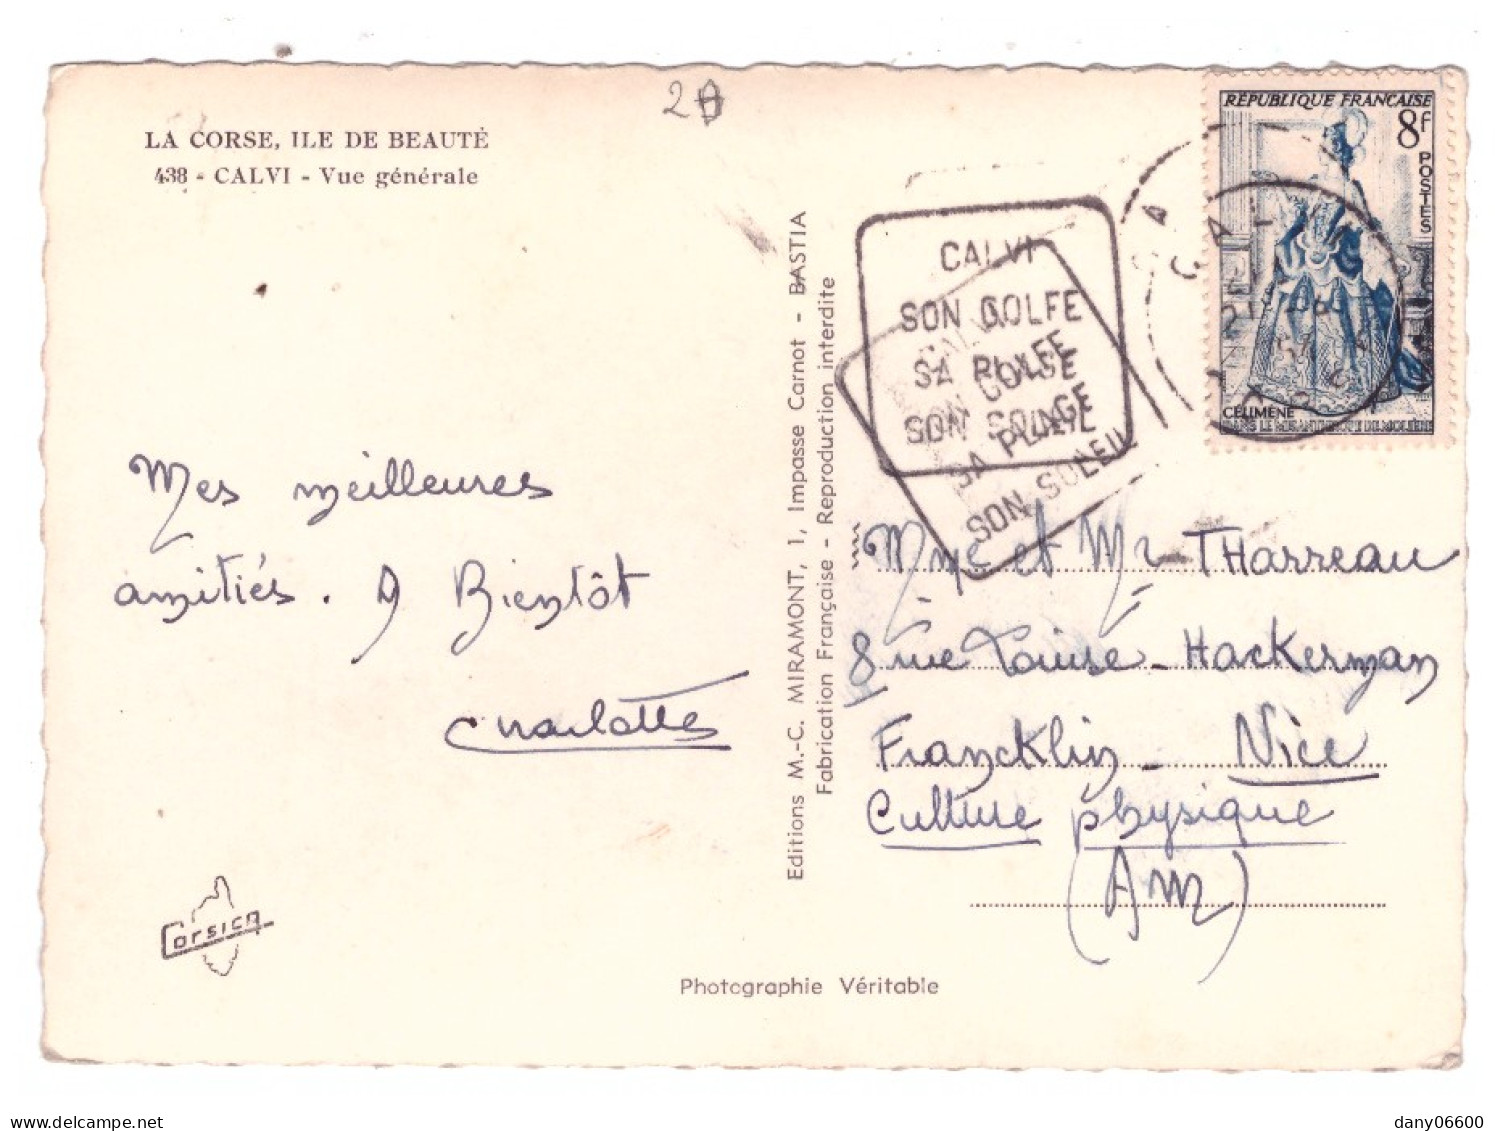 LA CORSE, ILE DE BEAUTÉ
438 - CALVI - Vue générale
Mes meilleures
amitiés. A Bientôt
Charlotte
Corsica
Photographie Véritable
Editions M.-C. MIRAMONT, 1, Impasse Carnot - BASTIA
Fabrication Française - Reproduction interdite
CALVI
SON GOLFE
SA PLAGE
SON SOLEIL
SA PLAGE
SON SOLEIL
RÉPUBLIQUE FRANÇAISE
8f
POSTES
CÉLIMÈNE
DANS LE MISANTHROPE DE MOLIÈRE
CALVI
Mme et Mr THarreau
8 rue Louise - Hackerman
Francklin - Nice
Culture physique
(AM)
dany06600